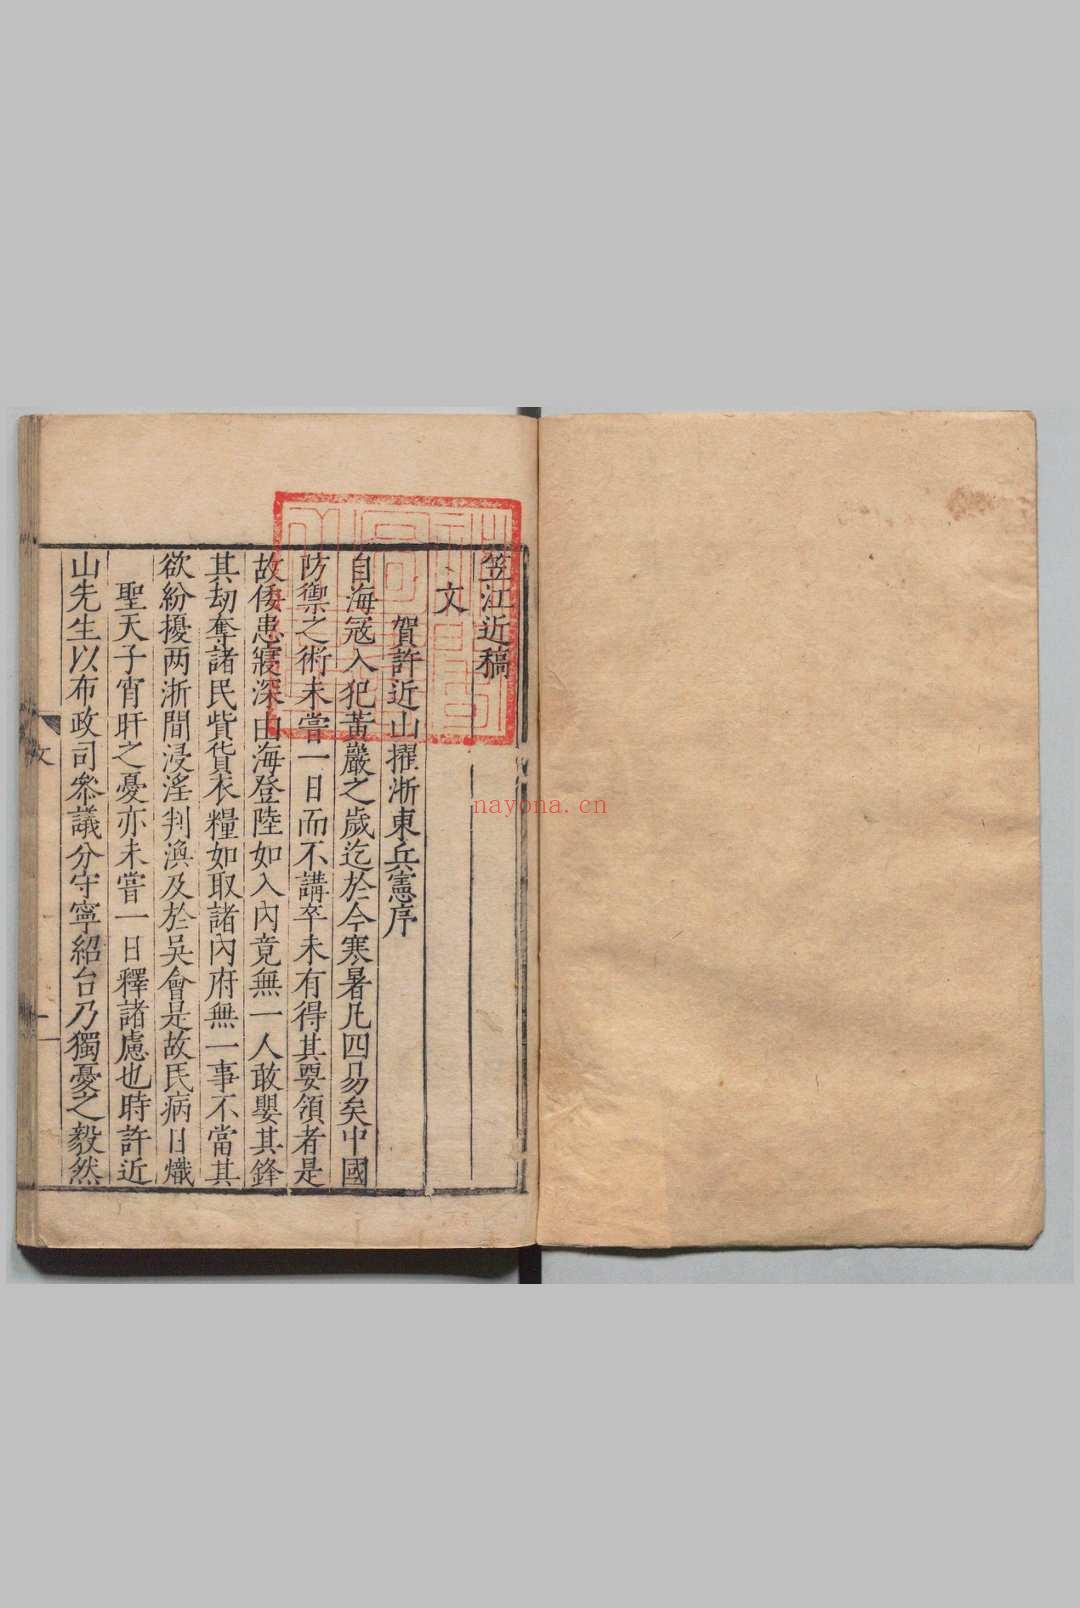 笠江近稿
文
賀許近山擢浙東兵憲序
自海冦入犯黃巖之歲迄於今寒暑凡四易矣中國
防禦之術未嘗一日而不講卒未有得其要領者是
故倭患寖深由海登陸如入內竟無一人敢嬰其鋒
其刼奪諸民貲貨衣糧如取諸內府無一事不當其
欲紛擾两浙間浸淫判渙及於吳會是故民病日熾
聖天子宵旰之憂亦未嘗一日釋諸慮也時許近
山先生以布政司叅議分守寧紹台乃獨憂之毅然
文
一
nayona.cn